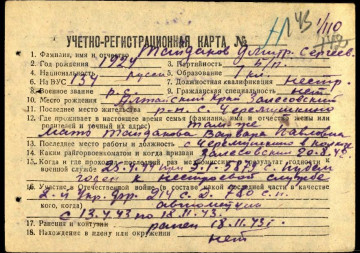 Н 43 1/110
УЧЕТНО-РЕГИСТРАЦИОННАЯ КАРТА №
1. Фамилия, имя и отчество Дмитр. Сергеев.
2. Год рождения 1924 3. Партийность б/п.
4. Национальность русский 5. Образование 7 кл.
6. № ВУС 134 7. Должностная квалификация
8. Военное звание р-с. 9. Гражданская специальность нет
10. Место рождения Алтайский край Залесовский
11. Последнее место жительства р-н. с. Черемушкино
12. Где проживает в настоящее время семья (фамилия, имя и отчество жены или
родителей и точный их адрес) там же
мать Варвара Павловна
13. Последнее место работы и должность с Черемушкино в колхозе
14. Каким райгорвоенкоматом и когда призван Залесовский 20.8.42
15. Когда и где проходил последний раз медкомиссию (результат годности к
военной службе) 25.4.44
годен к нестроевой службе
16. Участие в Отечественной войне (в составе какой последней части и в качестве
кого, когда) 2-й Укр. фр. 214 С.Д. 780 с.п.
автоматчик
с 13.4.43 по 18.11.43.
17. Ранения и контузии ранен 18.11.43 г.
18. Нахождение в плену или окружении нет